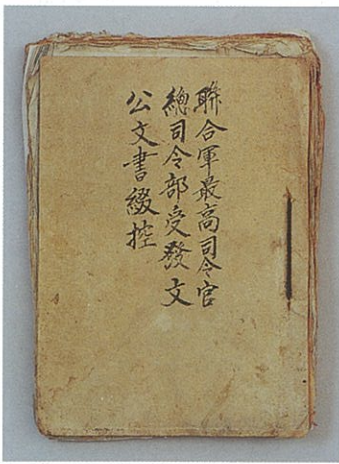 聯合軍最高司令官
總司令部受發文
公文書綴控